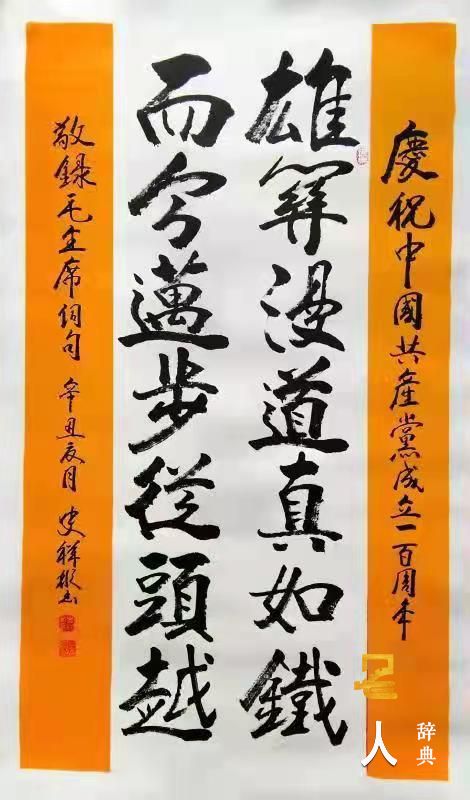 慶祝中國共產黨成立一百周年
雄關漫道真如鐵
而今邁步從頭越
敬録毛主席詞句 辛丑 月 史祥
名人
辞典